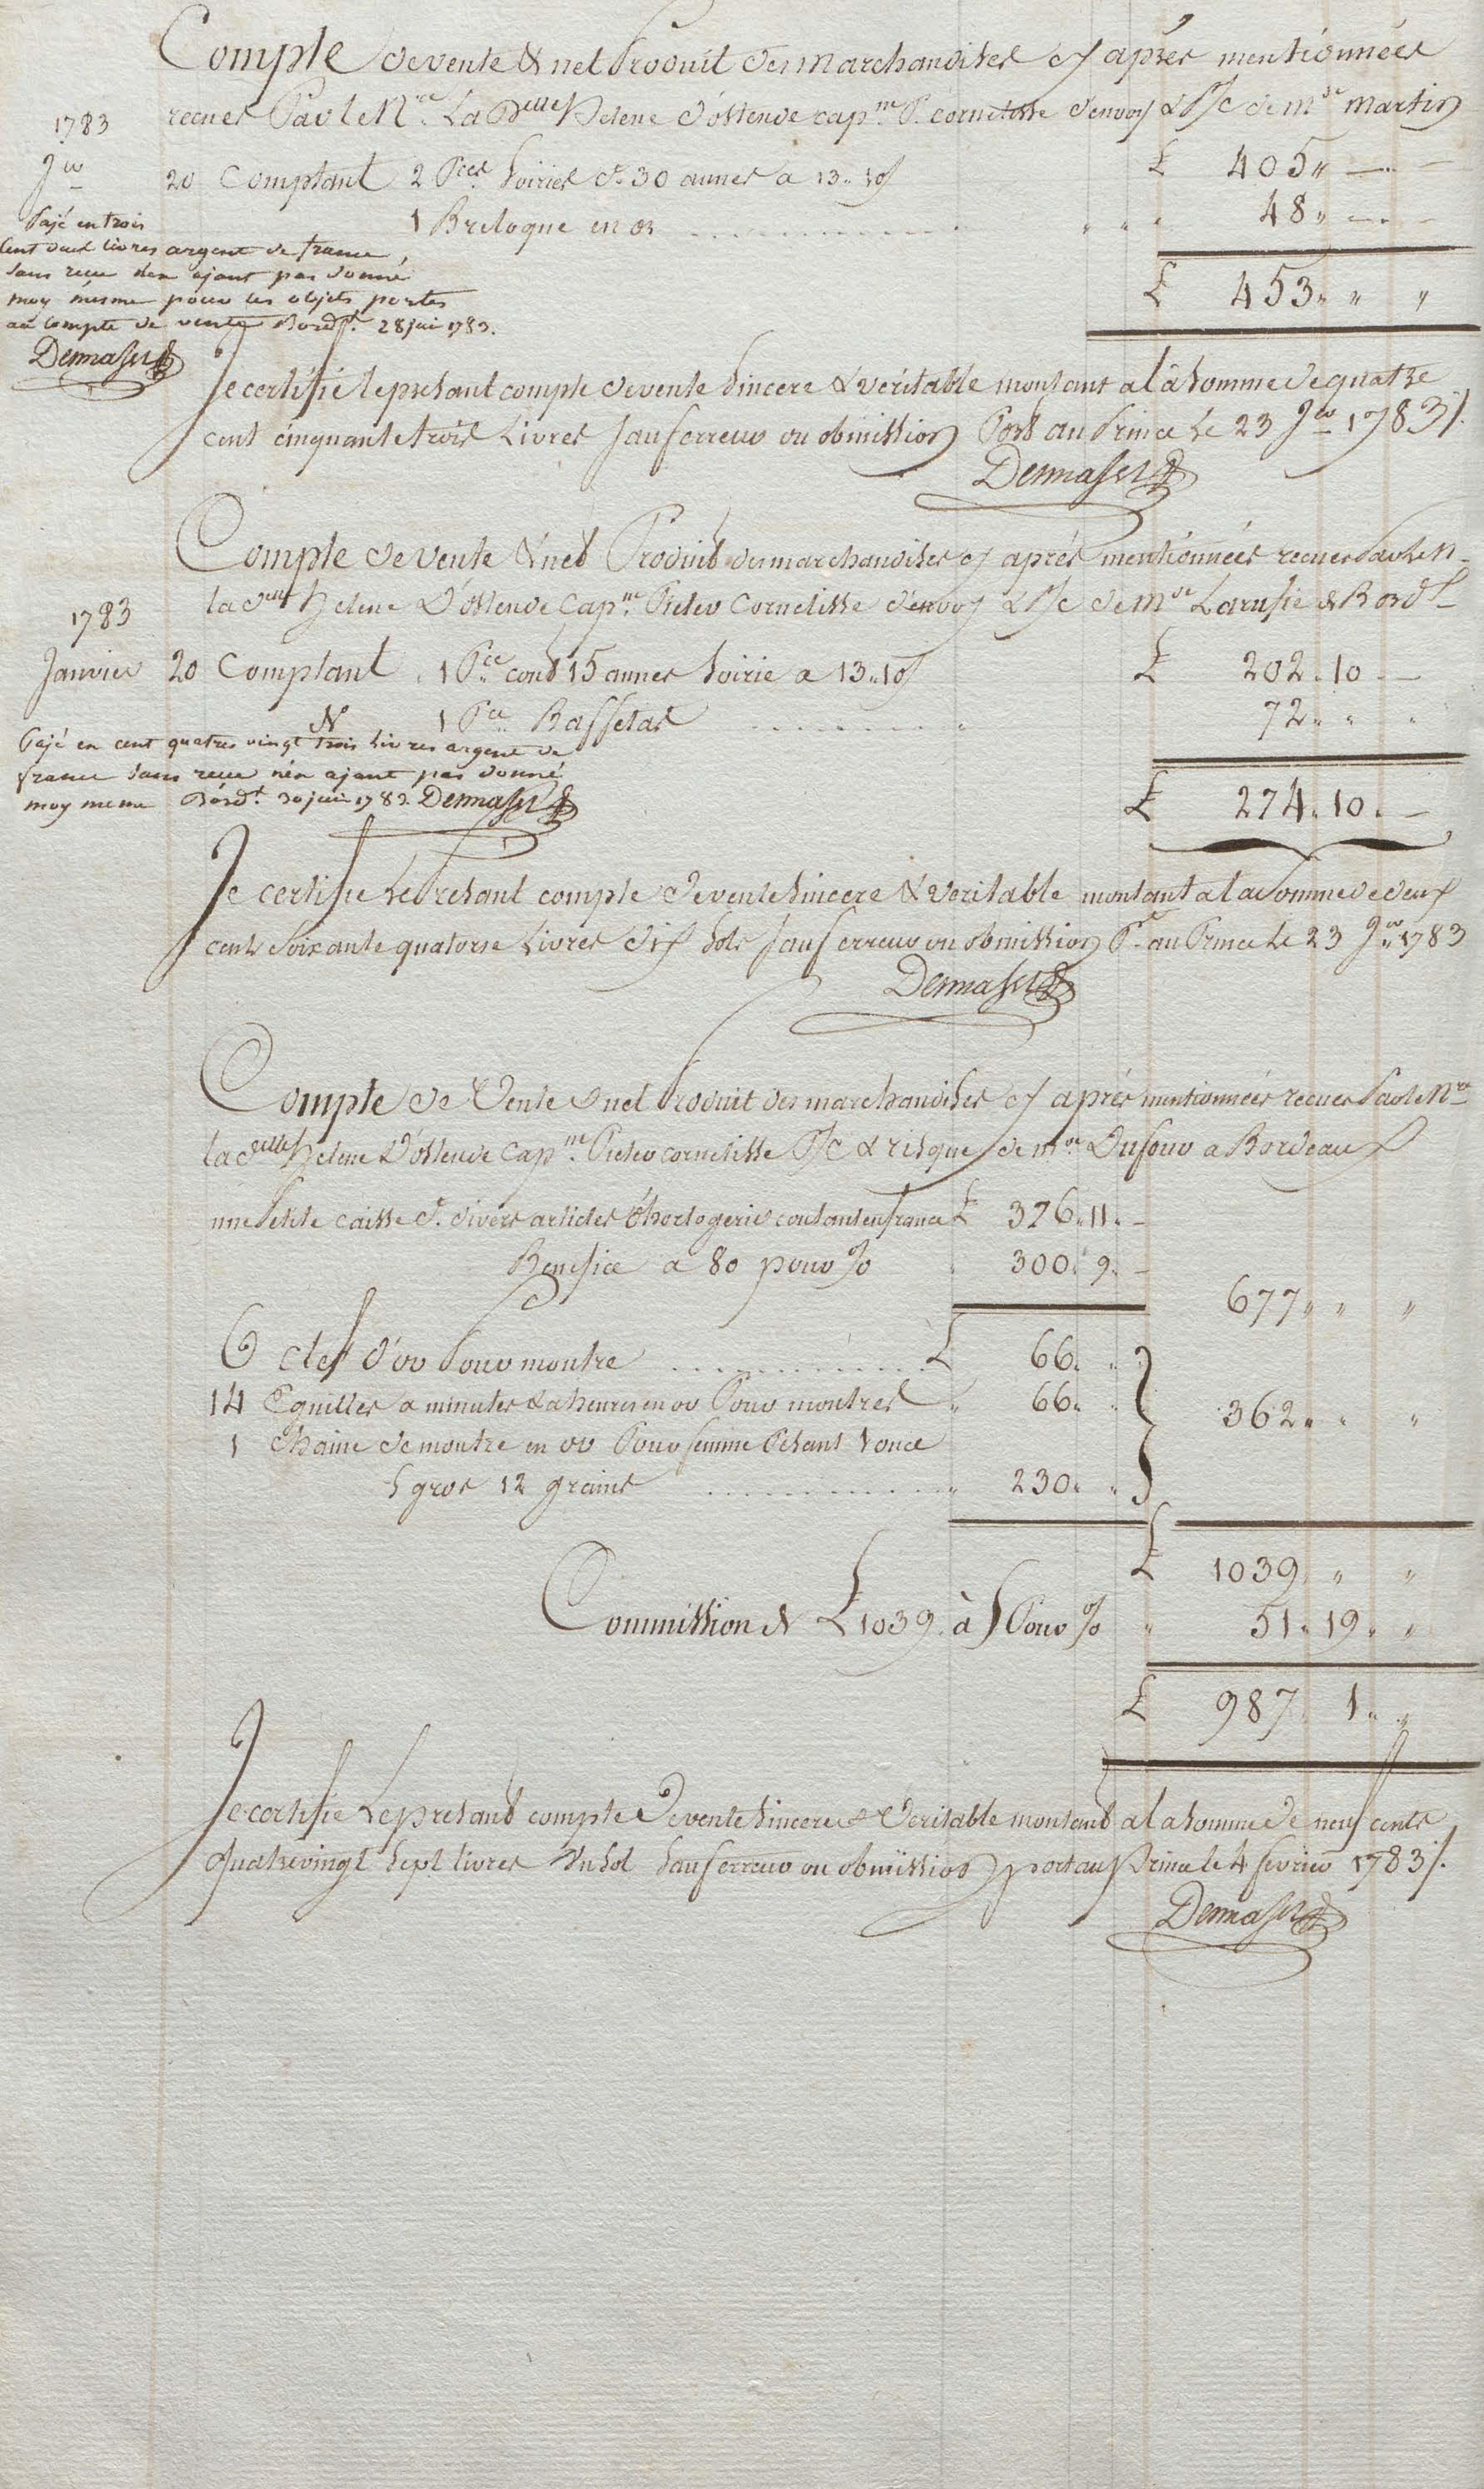 Compte de vente & net Produit des marchandises cy après mentionnées
recues Par le N.re La D.elle Helene d'ostende cap.ne P. cornelisse d'envoy & P/c de m.de Martin
1783
J.er 20 Comptant 2 P.ces Soiries d. 30 aunes a 13.. 10 £ 405 „ — —
1 Breloque en or 48 „ — —
£ 453 „ „ „
Pajé en trois
Cent deux livres argent de france,
sans recue n'en ajant pas donné
moy mesme pour les objets portes
au compte de vente Bord.x 28 juin 1783.
Desmasset
Je certifié le present compte de vente Sincere & véritable montant a la somme de quatre
cent cinquante trois Livres sauf erreur ou obmission Port au Prince Le 23 J.er 1783 /.
Desmasset
Compte de vente & net Produit des marchandises cy après mentionnées recues Par Le N
la d.elle helene D'ostende Cap.ne Pieter Cornelisse d'envoy & P/c de M.de Larusie de Bord.x
1783
Janvier 20 Comptant 1 P.ce cont 15 aunes Soirie a 13..10 £ 202 . 10 —
N 1 P.ce Baffetas 72 „ „ „
£ 274 . 10 . —
Pajé en cent quatres vingt trois Livres argent de
france sans recue n'en ajant pas donné
moy meme Bord.x 30 juin 1783. Desmasset
Je certifie Le Presant compte de vente Sincere & veritable montant a la somme de deux
cents Soixante quatorse Livres dix Sols sauf erreur ou obmission P.t au Prince Le 23 J.er 1783
Desmasset
Compte de Vente & net Produit des marchandises cy après mentionnées recues Par le N.re
la d.elle helene D'ostende Cap.ne Pieter cornelisse P/c & risque de m.de Dufour a Bordeaux
une Petite caisse d. divers articles d'horlogerie coutant en france £ 376 . 11 . —
Benefice a 80 pour % 300 . 9 . —
677 „ „ „
6 clef d'or Pour montre £ 66 „ „
14 Eguilles a minutes & a heures en or Pour montres „ 66 „ „
362 „ „ „
1 chaine de montre en or Pour femme Pesant 1 once
5 gros 12 grains „ 230 „ „
£ 1039 „ „
Commission de £ 1039 . à 5 Pour % „ 51 . 19 „ „
£ 987 1 „ „
Je certifie Le present compte de vente Sincere & Veritable montant a la somme de neuf cents
quatrevingt Sept livres Un Sol Sauf erreur ou obmission port au Prince le 4 fevrier 1783 /.
Desmasset